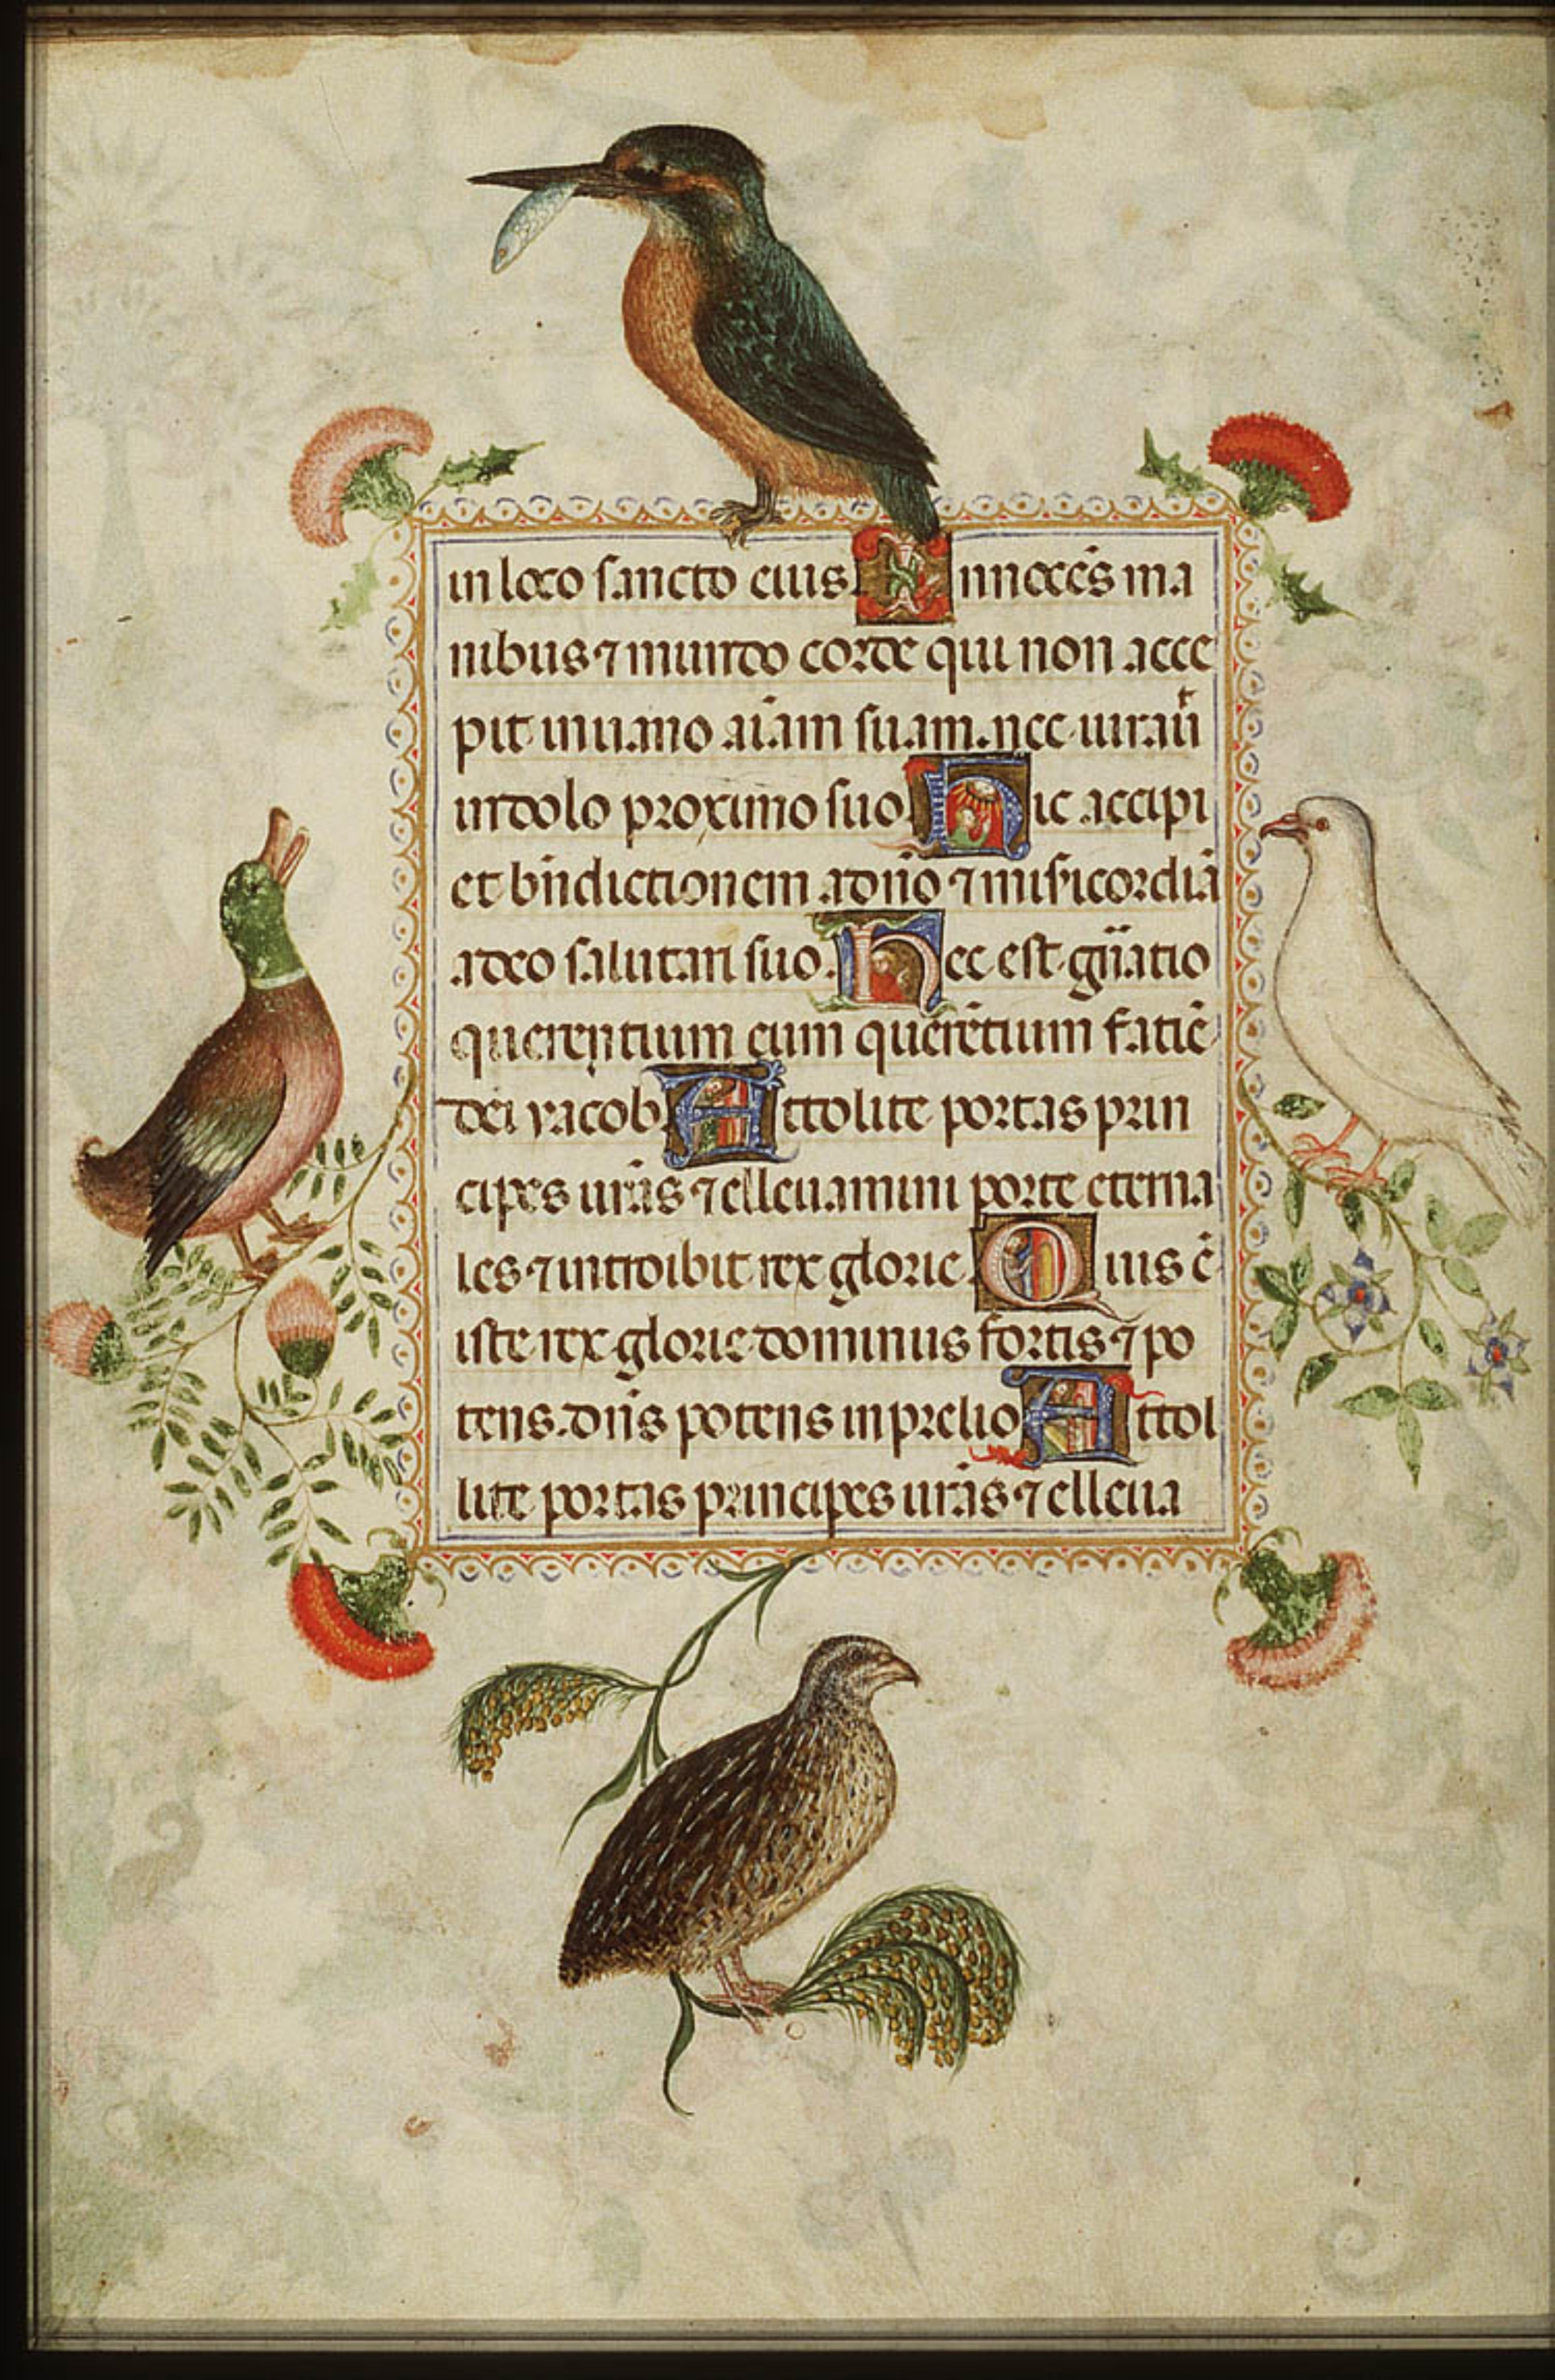 in loco sancto eius Innocẽs ma
nibus ⁊ mundo corde qui non acce
pit in uano aĩam suam. nec iurauit
in dolo proximo suo. Hic accipi
et bñdictionem a dño ⁊ misicordiã
a deo salutari suo. Hec est gñatio
querentium eum querẽtium fatiẽ
dei yacob Attolite portas prin
cipes urãs ⁊ elleuamini porte eterna
les ⁊ introibit rex glorie. Quis ẽ
iste rex glorie dominus fortis ⁊ po
tens. dñs potens in prelio Attol
lite portas principes urãs ⁊ elleua